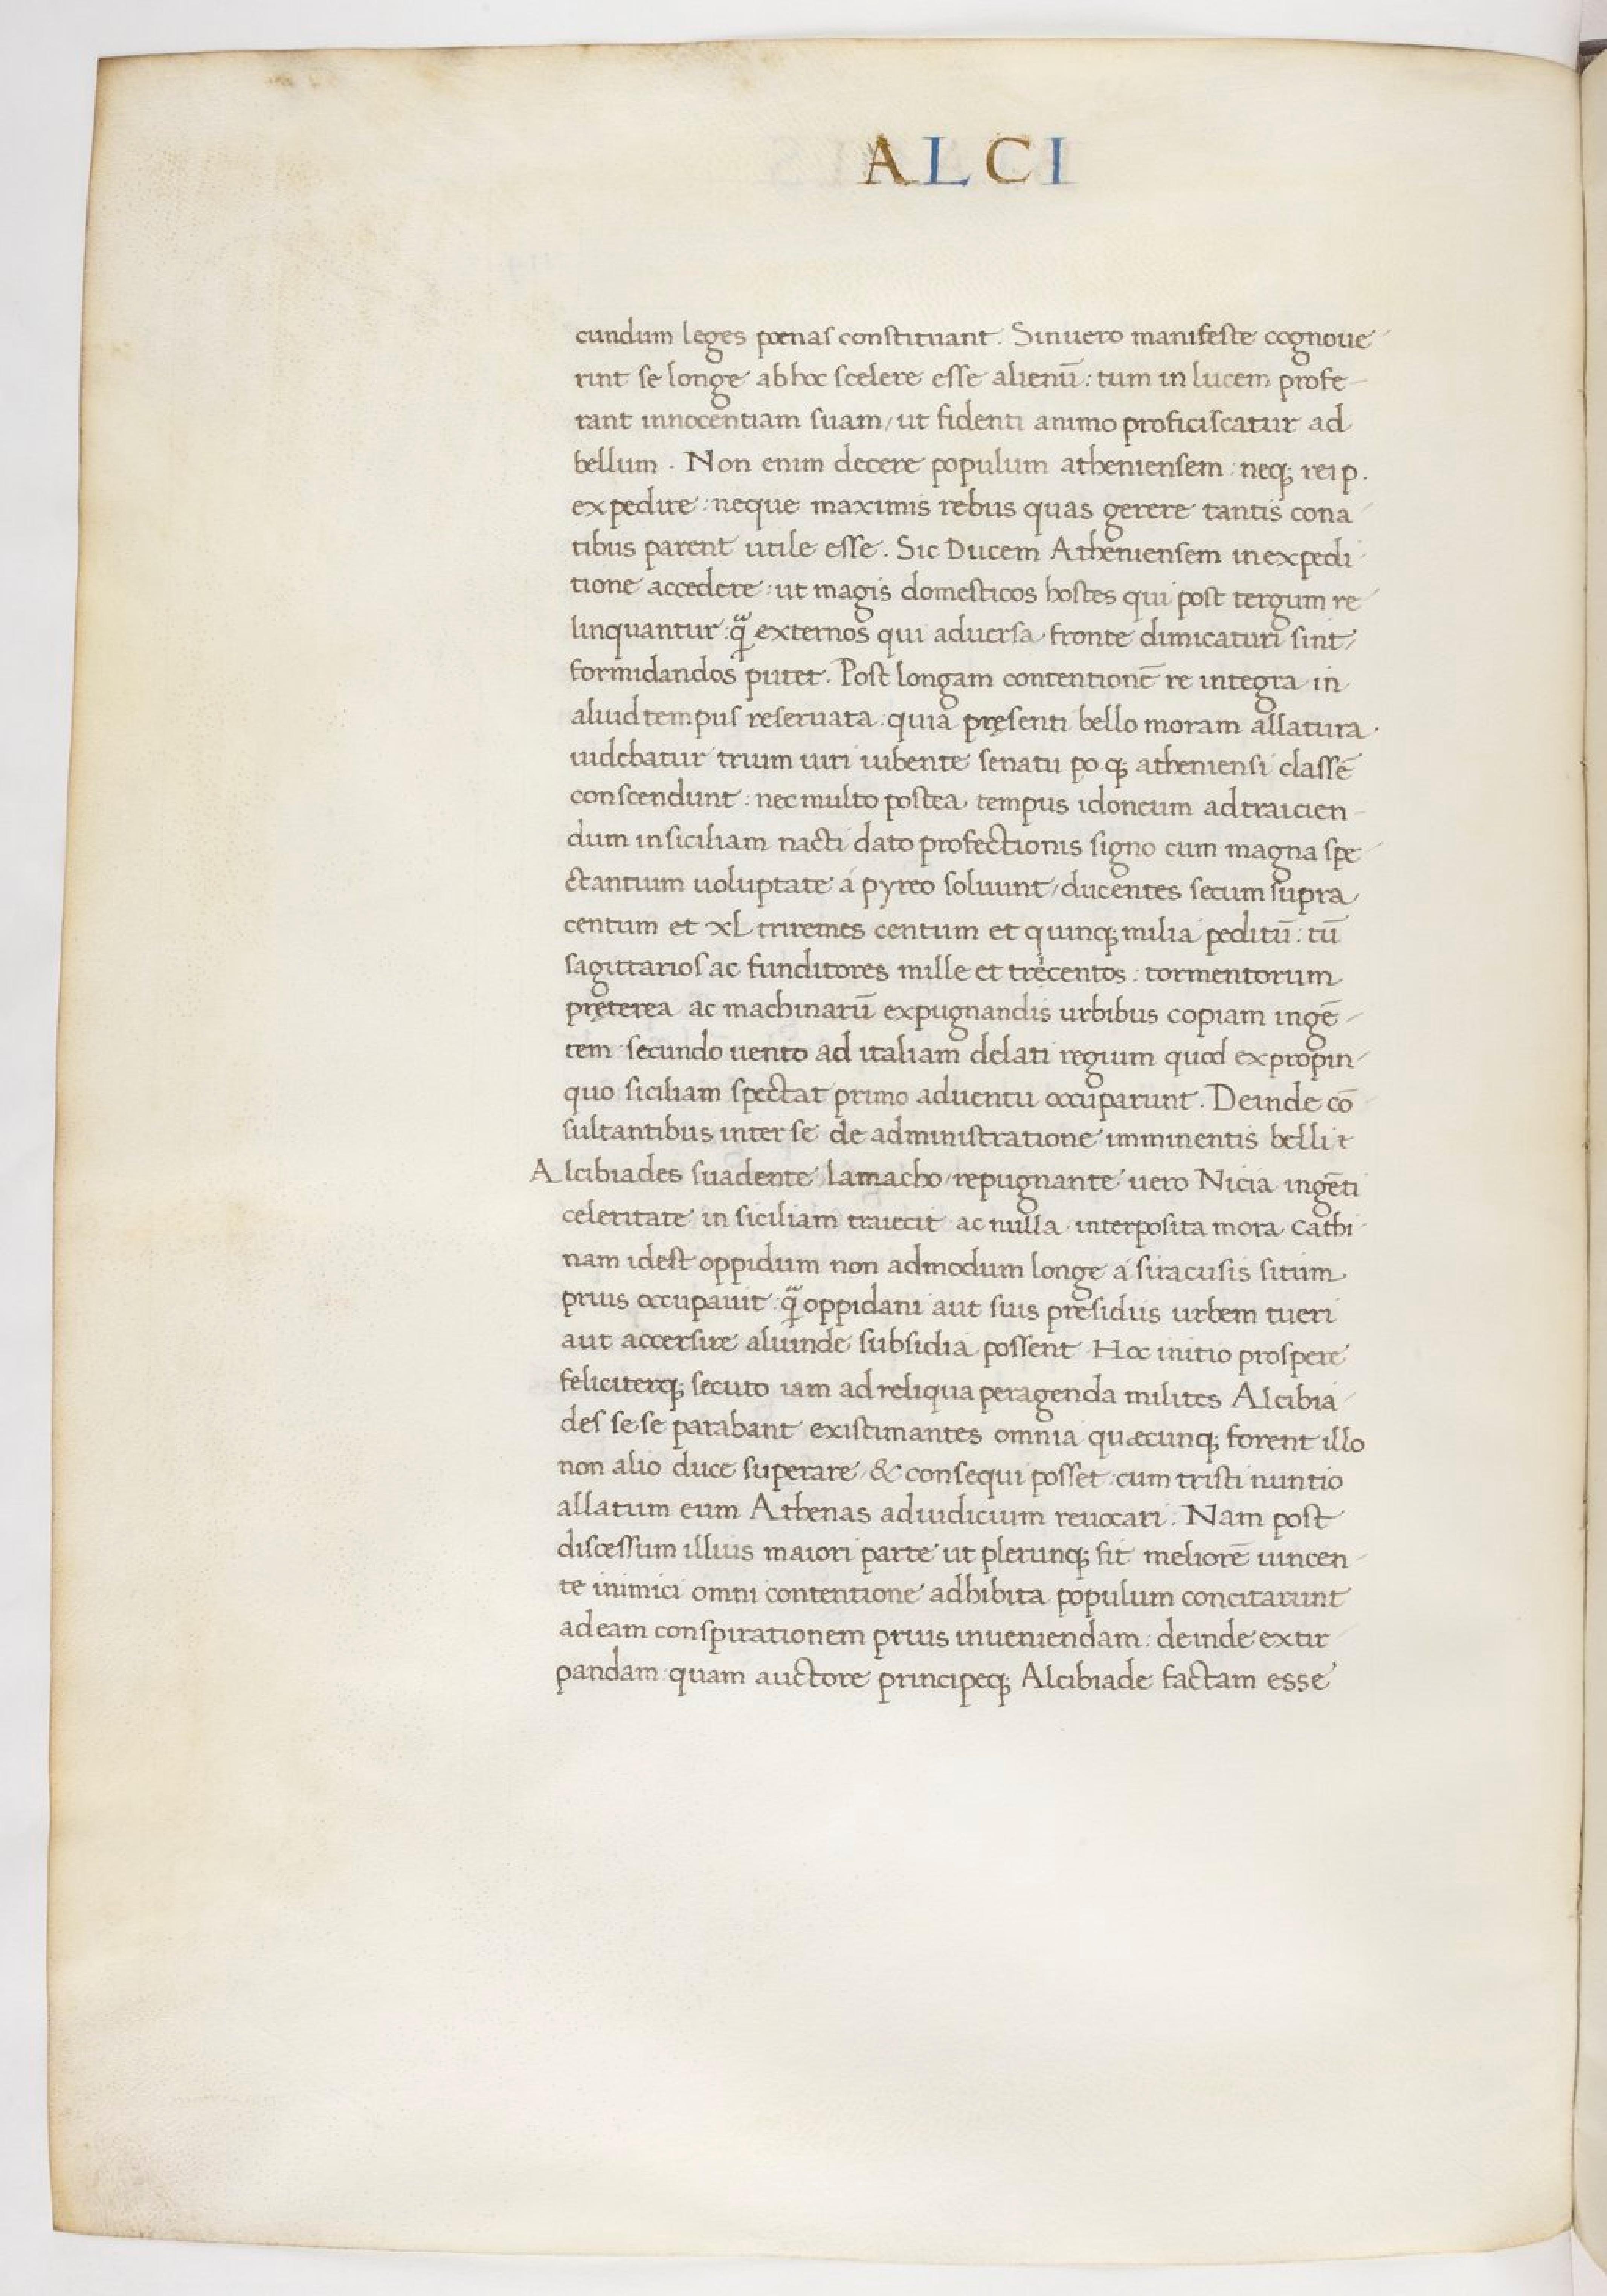 ALCI
cundum leges pœnas constituant. Sinuero manifeste cognoue
rint se longe ab hoc scelere esse alienū: tum in lucem profe-
rant innocentiam suam, ut fidenti animo proficiscatur ad
bellum. Non enim decere populum atheniensem: neq; reip.
expedire: neque maximis rebus quas gerere tantis cona
tibus parent utile esse. Sic Ducem Atheniensem in expedi
tione accedere: ut magis domesticos hostes qui post tergum re
linquantur: q̃ externos qui aduersa fronte dimicaturi sint,
formidandos putet. Post longam contentionē re integra in
aliud tempus reseruata: quia pręsenti bello moram allatura
uidebatur trium uiri iubente senatu po.q; atheniensi classē
conscendunt: nec multo postea tempus idoneum ad traicien-
dum in siciliam nacti dato profectionis signo cum magna spe
ctantium uoluptate á pyreo soluunt, ducentes secum supra
centum et XL triremes centum et quinq; milia peditū: tū
sagittarios ac funditores mille et trecentos: tormentorum
pręterea ac machinarū expugnandis urbibus copiam ingē-
tem secundo uento ad italiam delati regium quod ex propin-
quo siciliam spectat primo aduentu occuparunt. Deinde cō
sultantibus inter se de administratione imminentis belli
Alcibiades suadente lamacho, repugnante uero Nicia ingēti
celeritate in siciliam traiecit ac nulla interposita mora Cathi
nam idest oppidum non admodum longe á siracusis situm
prius occupauit: q̃ oppidani aut suis presidiis urbem tueri
aut accersire aliunde subsidia possent Hoc initio prospere
feliciterq; secuto iam ad reliqua peragenda milites Alcibia
des sese parabant existimantes omnia quæcunq; forent illo
non alio duce superare, & consequi posset: cum tristi nuntio
allatum eum Athenas ad iudicium reuocari. Nam post
discessum illius maiori parte ut plerunq; fit meliorē uincen-
te inimici omni contentione adhibita populum concitarunt
ad eam conspirationem prius inueniendam: deinde extir
pandam quam auctore principeq; Alcibiade factam esse